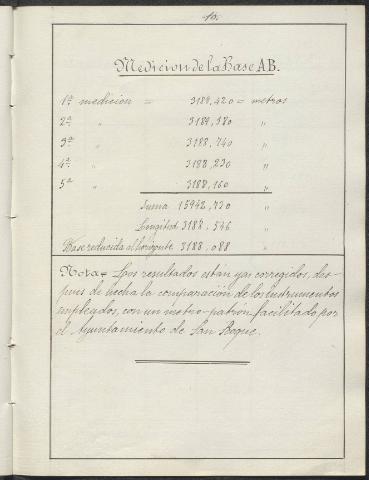 10.
Medicion de la Base AB.
1ª medicion = 3188,420 = metros
2ª " 3189,180 "
3ª " 3188,740 "
4ª " 3188,230 "
5ª " 3188,160 "
Suma 15942,730 "
Longitud 3188,546 "
Base reducida al horizonte 3188,088 "
Nota= Los resultados están ya corregidos, des-
pues de hecha la comparación de los instrumentos
empleados, con un metro-patrón facilitado por
el Ayuntamiento de San Roque.